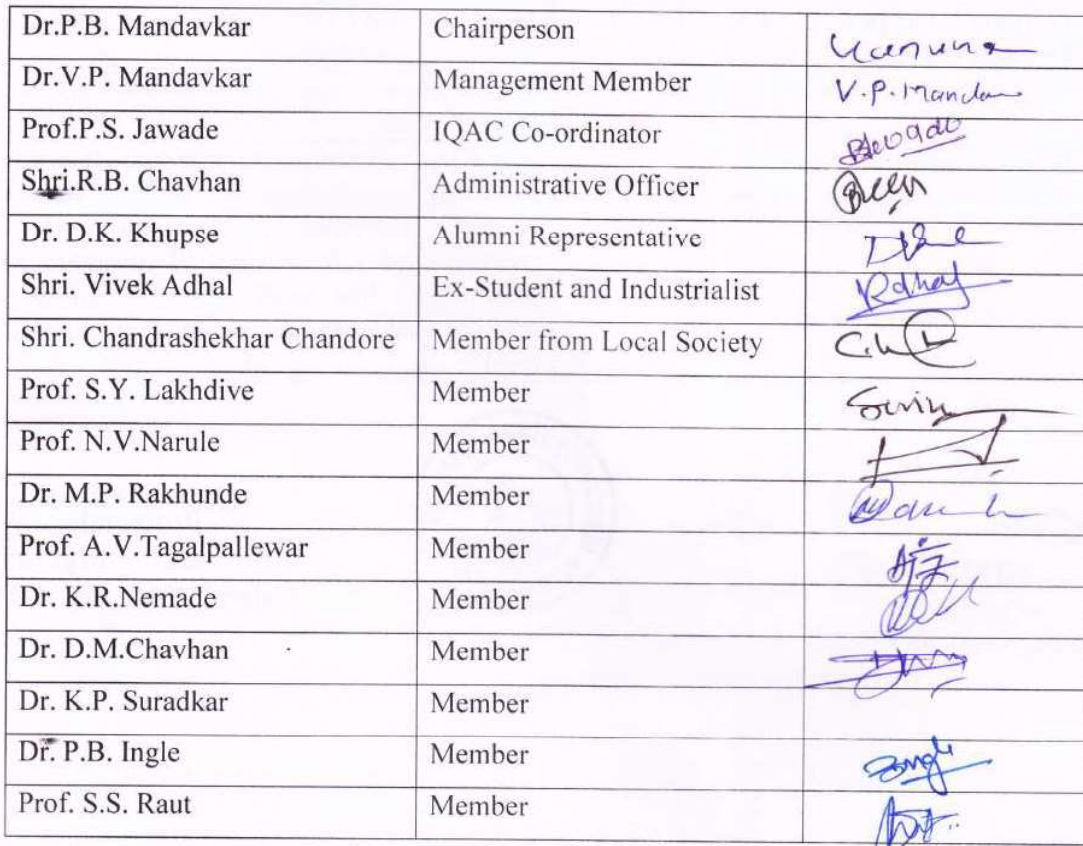 Dr.P.B. Mandavkar Chairperson
Dr.V.P. Mandavkar Management Member V.P.Manda
Prof.P.S. Jawade IQAC Co-ordinator
Shri.R.B. Chavhan Administrative Officer
Dr. D.K. Khupse Alumni Representative
Shri. Vivek Adhal Ex-Student and Industrialist
Shri. Chandrashekhar Chandore Member from Local Society
Prof. S.Y. Lakhdive Member
Prof. N.V.Narule Member
Dr. M.P. Rakhunde Member
Prof. A.V.Tagalpallewar Member
Dr. K.R.Nemade Member
Dr. D.M.Chavhan Member
Dr. K.P. Suradkar Member
Dr. P.B. Ingle Member
Prof. S.S. Raut Member